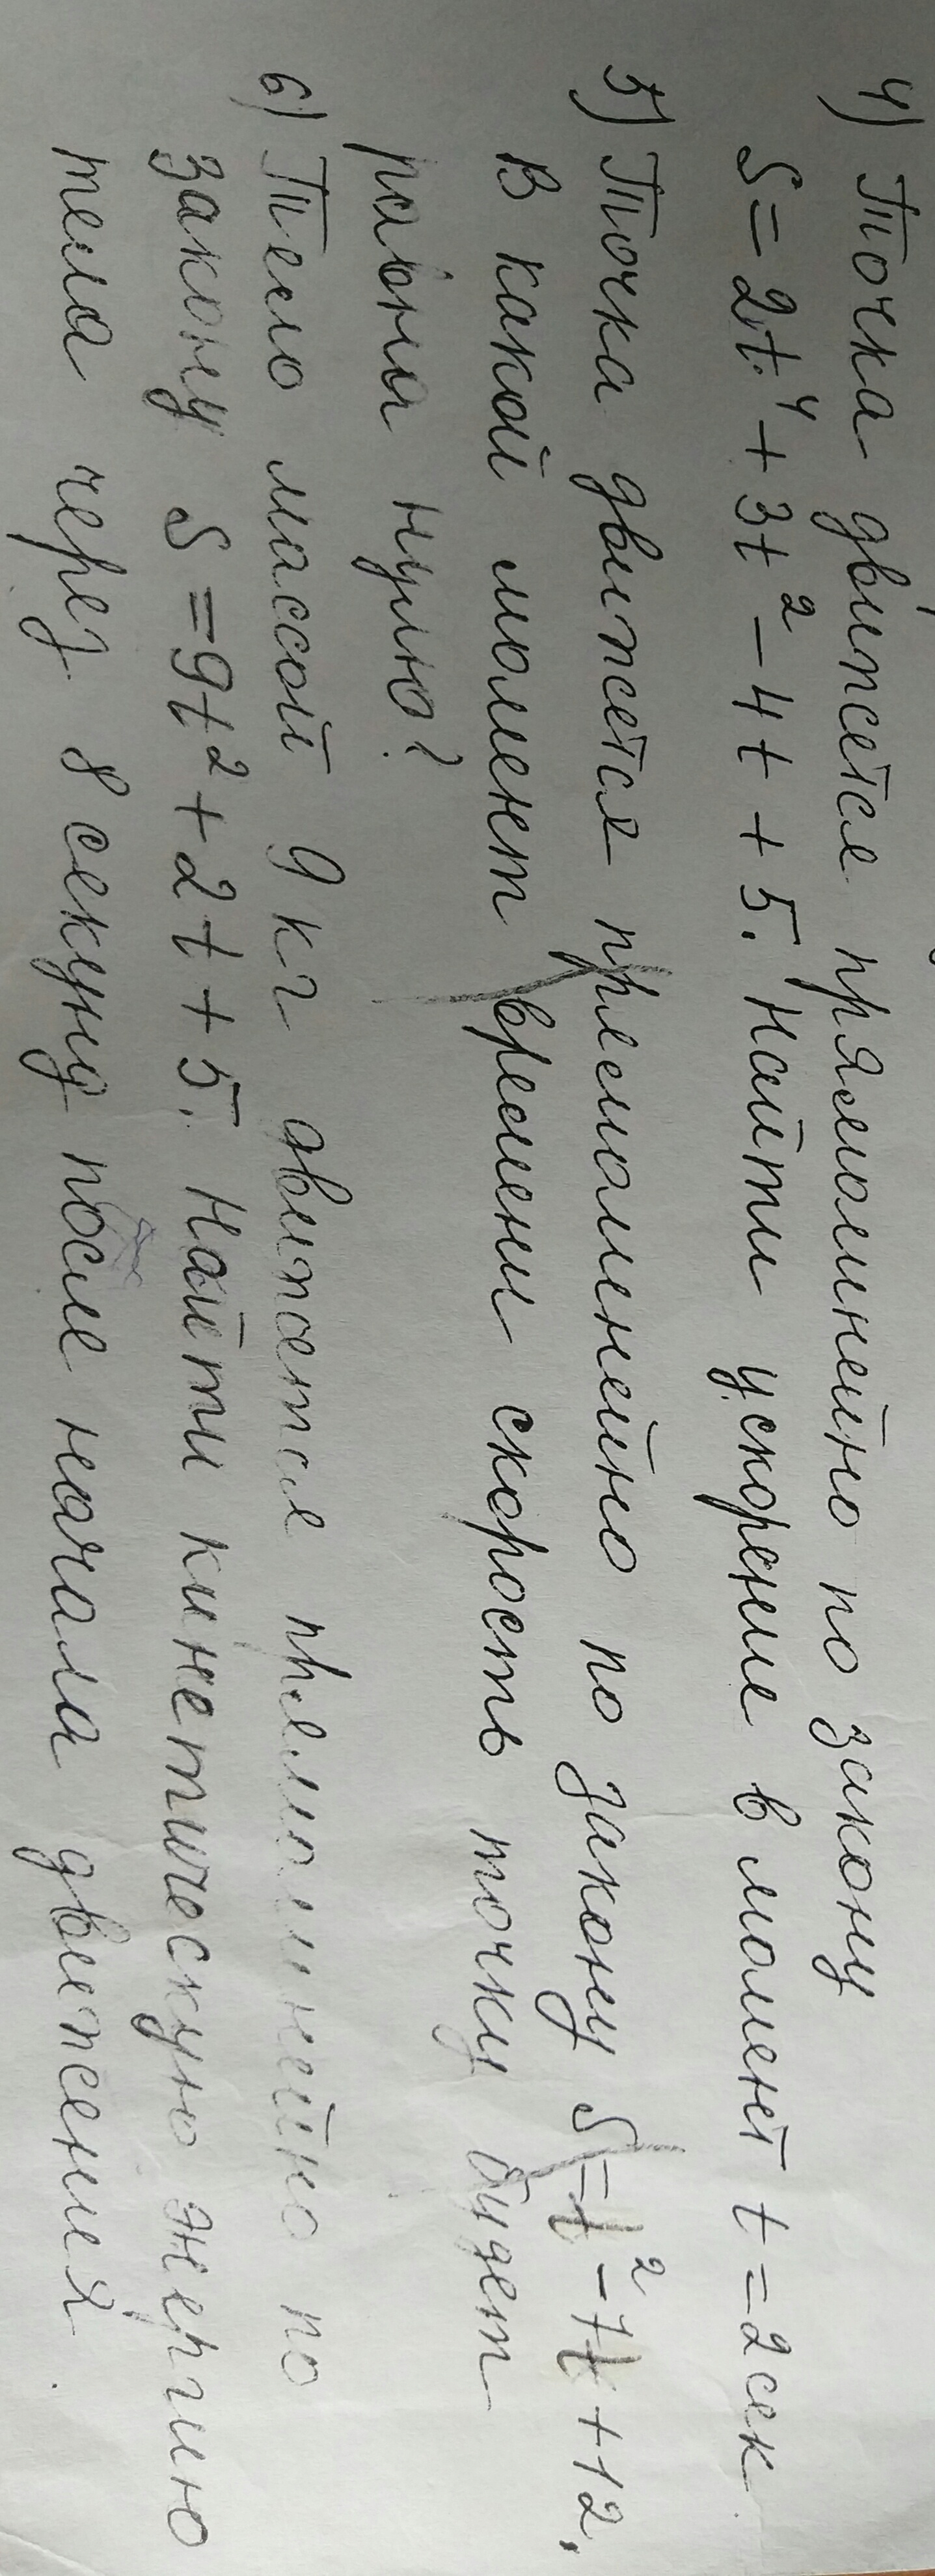 4) Точка движется прямолинейно по закону
S = 2t⁴ + 3t² - 4t + 5. Найти ускорение в момент t = 2сек.
5) Точка движется прямолинейно по закону S = t² - 7t + 12.
В какой момент времени скорость точки будет
равна нулю?
6) Тело массой 9 кг движется прямолинейно по
закону S = 9t² + 2t + 5. Найти кинетическую энергию
тела через 8 секунд после начала движения.